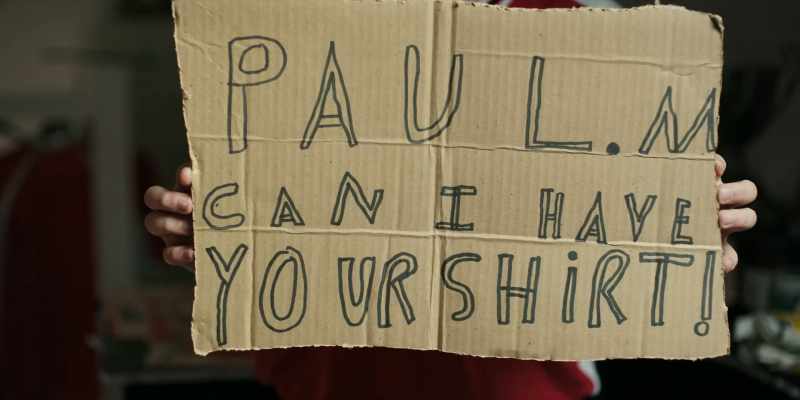 PAUL.M
CAN I HAVE
YOUR SHiRT!